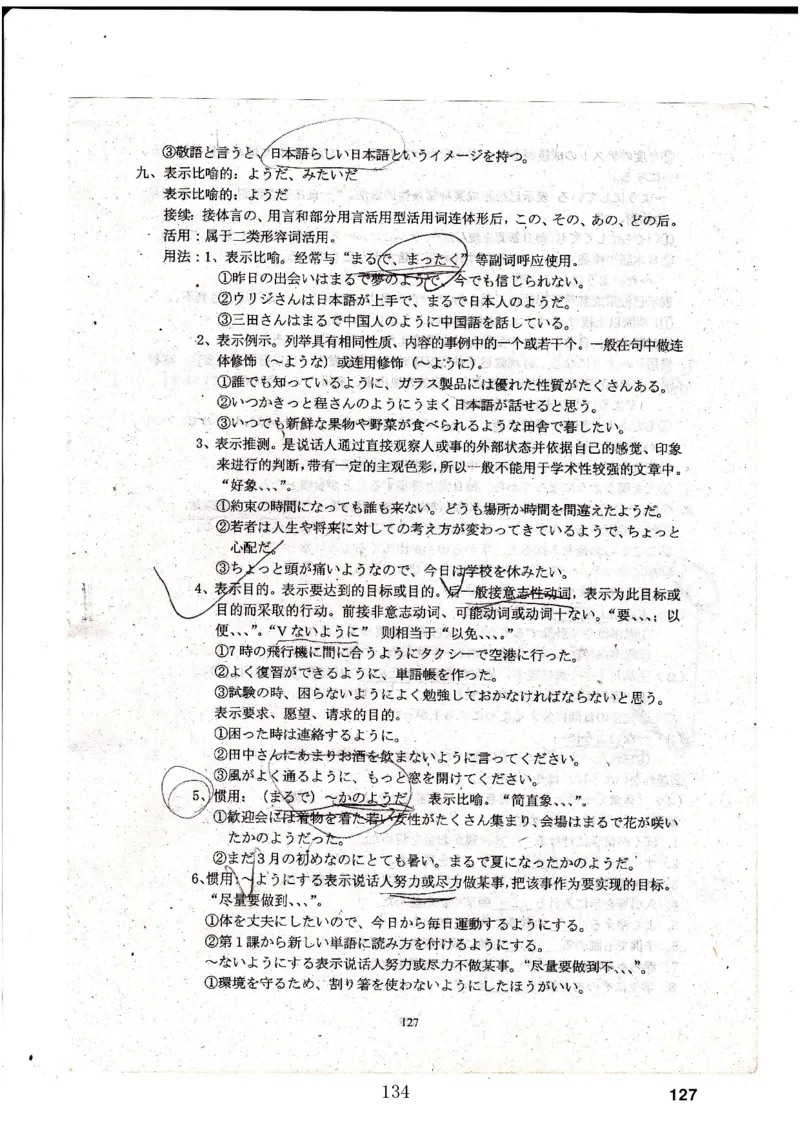 ③敬語と言うと、日本語らしい日本語というイメージを持つ。
九、表示比喻的：ようだ、みたいだ
表示比喻的：ようだ
接续：接体言の、用言和部分用言活用型活用词连体形后，この、その、あの、どの后。
活用：属于二类形容词活用。
用法：1、表示比喻。经常与“まるで、まったく”等副词呼应使用。
①昨日の出会いはまるで夢のようで、今でも信じられない。
②ウリジさんは日本語が上手で、まるで日本人のようだ。
③三田さんはまるで中国人のように中国語を話している。
2、表示例示。列举具有相同性质、内容的事例中的一个或若干个。一般在句中做连
体修饰（～ような）或连用修饰（～ように）。
①誰でも知っているように、ガラス製品には優れた性質がたくさんある。
②いつかきっと程さんのようにうまく日本語が話せると思う。
③いつでも新鮮な果物や野菜が食べられるような田舎で暮したい。
3、表示推测。是说话人通过直接观察人或事的外部状态并依据自己的感觉、印象
来进行的判断，带有一定的主观色彩，所以一般不能用于学术性较强的文章中。
“好象、、、”。
①約束の時間になっても誰も来ない。どうも場所か時間を間違えたようだ。
②若者は人生や将来に対しての考え方が変わってきているようで、ちょっと
心配だ。
③ちょっと頭が痛いようなので、今日は学校を休みたい。
4、表示目的。表示要达到的目标或目的。后一般接意志性动词，表示为此目标或
目的而采取的行动。前接非意志动词、可能动词或动词十ない。“要、、、；以
便、、、”。“Vないように”则相当于“以免、、、。”
①7時の飛行機に間に合うようにタクシーで空港に行った。
②よく復習ができるように、単語帳を作った。
③試験の時、困らないようによく勉強しておかなければならないと思う。
表示要求、愿望、请求的目的。
①困った時は連絡するように。
②田中さんにあまりお酒を飲まないように言ってください。
③風がよく通るように、もっと窓を開けてください。
5、惯用：（まるで）～かのようだ 表示比喻。“简直象、、、”。
①歓迎会には着物を着た若い女性がたくさん集まり、会場はまるで花が咲い
たかのようだった。
②まだ3月の初めなのにとても暑い。まるで夏になったかのようだ。
6、惯用：～ようにする表示说话人努力或尽力做某事，把该事作为要实现的目标。
“尽量要做到、、、”。
①体を丈夫にしたいので、今日から毎日運動するようにする。
②第1課から新しい単語に読み方を付けるようにする。
～ないようにする表示说话人努力或尽力不做某事。“尽量要做到不、、、”。
①環境を守るため、割り箸を使わないようにしたほうがいい。
127
134
127